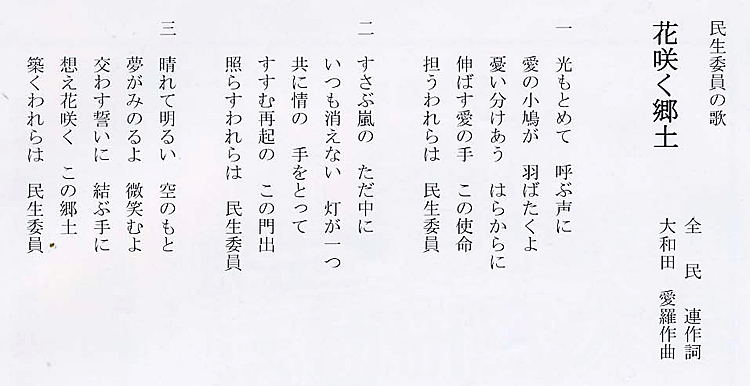 民生委員の歌
花咲く郷土
全民連作詞
大和田 愛羅作曲
一 光もとめて 呼ぶ声に
愛の小鳩が 羽ばたくよ
憂い分けあう はらからに
伸ばす愛の手 この使命
担うわれらは 民生委員
二 すさぶ嵐の ただ中に
いつも消えない 灯が一つ
共に情の 手をとって
すすむ再起の この門出
照らすわれらは 民生委員
三 晴れて明るい 空のもと
夢がみのるよ 微笑むよ
交わす誓いに 結ぶ手に
想え花咲く この郷土
築くわれらは 民生委員